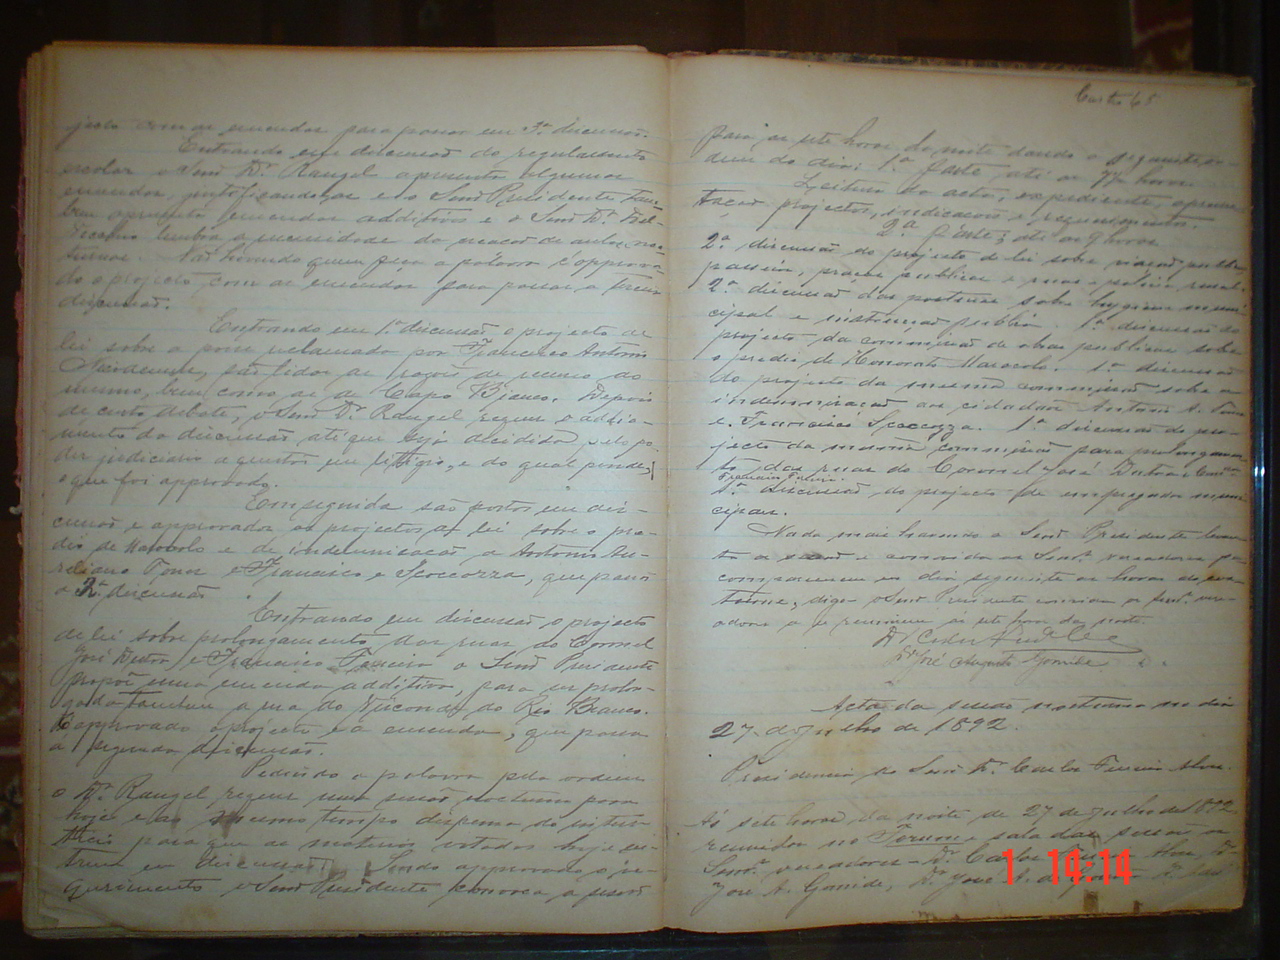 jecto com as emendas para passar em 3ª discussão.
Entrando em discussão do regulamento
escolar o Senr Dr. Rangel apresenta algumas
emendas, justificando-as e o Senr Presidente tam-
bem apresenta emendas additivas e o Senr Dr.
lembra a necessidade da creação de aulas noc-
turnas. Não havendo quem peça a palavra é approva-
do o projecto com as emendas para passar a terceira
discussão.
Entrando em 1ª discussão o projecto de
lei sobre a posse reclamada por Francisco Antonio
são lidas as razões de recurso do
mesmo, bem como as de Capo Bianco. Depois
de curto debate, o Senr Dr. Rangel requer o addia-
mento da discussão até que seja decidida pelo po-
der judiciario a questão em littigio, e da qual pende,
o que foi approvado.
Em seguida são postos em dis-
cussão e approvados os projectos de lei sobre o pre-
dio de Maravolo e de indemnisação a Antonio Au-
reliano e Francisco e Scoccozza, que passa
a 2ª discussão
Entrando em discussão o projecto
de lei sobre prolongamento das ruas do Coronel
José Dutra e Francisco o Senr Presidente
propoz uma emenda additiva, para ser prolon-
gada tambem a rua do Visconde do Rio Branco.
É approvado o projecto e a emenda, que passa
a segunda discussão.
Pedindo a palavra pela ordem
o Dr. Rangel requer uma sessão nocturna para
hoje e ao mesmo tempo dispensa do inters-
ticio para que as materias votadas hoje en-
trem em discussão. Sendo approvado o re-
querimento o Senr Presidente convoca a sessão
65
para as sete horas da noite dando a seguinte or-
dem do dia: 1ª parte, até as 7½ horas
Leitura da acta, expediente, apresen-
tação projectos, indicações e requerimentos.
2ª parte, até as 9 horas
2ª discussão do projecto de lei sobre viação publica
passeios, praças publicas e ruas e policia rural.
2ª discussão das posturas sobre hygiene muni-
cipal e instrucção publica. 1ª discussão do
projecto da commissão de obras publicas sobre
o predio de Honorato Maravolo. 1ª discussão
do projecto da mesma commissão sobre a
indemnisação aos cidadãos Antonio A.
e Francisco Scoccozza. 1ª discussão do pro-
jecto da mesma commissão para prolongamen-
to das ruas do Coronel José Dutra e
Francisco
1ª discussão do projecto de empregados muni-
cipaes.
Nada mais havendo o Senr Presidente levan-
ta a sessão e convida os Senrs vereadores pa
comparecerem no dia seguinte as horas do cos-
tume, digo o Senr Presidente convida os Senrs vere-
adores a se reunirem as sete horas da noite.
Dr. Carlos
Dr José Augusto Gomide
Acta da sessão nocturna no dia
27 de Julho de 1892.
Presidencia do Senr Dr. Carlos Ferreira Alves.
Ás sete horas da noite de 27 de Julho de 1892
reunidos no Forum e sala das sessões os
Senrs vereadores Dr. Carlos Alves, Dr.
José A. Gomide, Dr. José A. de
1 14:14